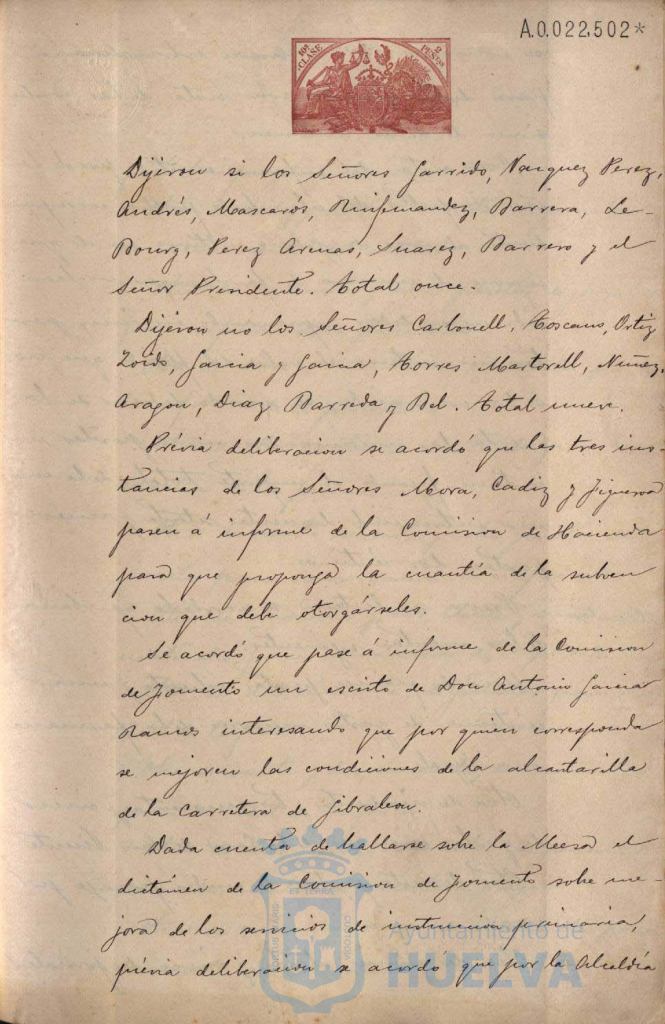 A.0.022,502*
10ª CLASE 2 PESETAS
Dijéron si los Señores Garrido, Vazquez Perez,
Andrés, Mascarós, Ruifernandez, Barrera, Le-
Bourg, Perez Arenas, Suarez, Barrero y el
Señor Presidente. Total once.
Dijéron no los Señores Carbonell, Toscano, Ortiz
Zoido, Garcia y Garcia, Torres Martorell, Nuñez,
Aragon, Diaz Barreda y Bel. Total nueve.
Prévia deliberacion se acordó que las tres ins-
tancias de los Señores Mora, Cadiz y Figueroa
pasen á informe de la Comision de Hacienda
para que proponga la cuantía de la subven
cion que debe otorgárseles.
Se acordó que pase á informe de la Comision
de Fomento un escrito de Don Antonio Garcia
Ramos interesando que por quien corresponda
se mejoren las condiciones de la alcantarilla
de la Carretera de Gibraleon.
Dada cuenta de hallarse sobre la Meesa el
dictámen de la Comision de Fomento sobre me-
jora de los servicios de instruccion primaria,
prévia deliberacion se acordó que por la Alcaldía
Ayuntamiento de
HUELVA